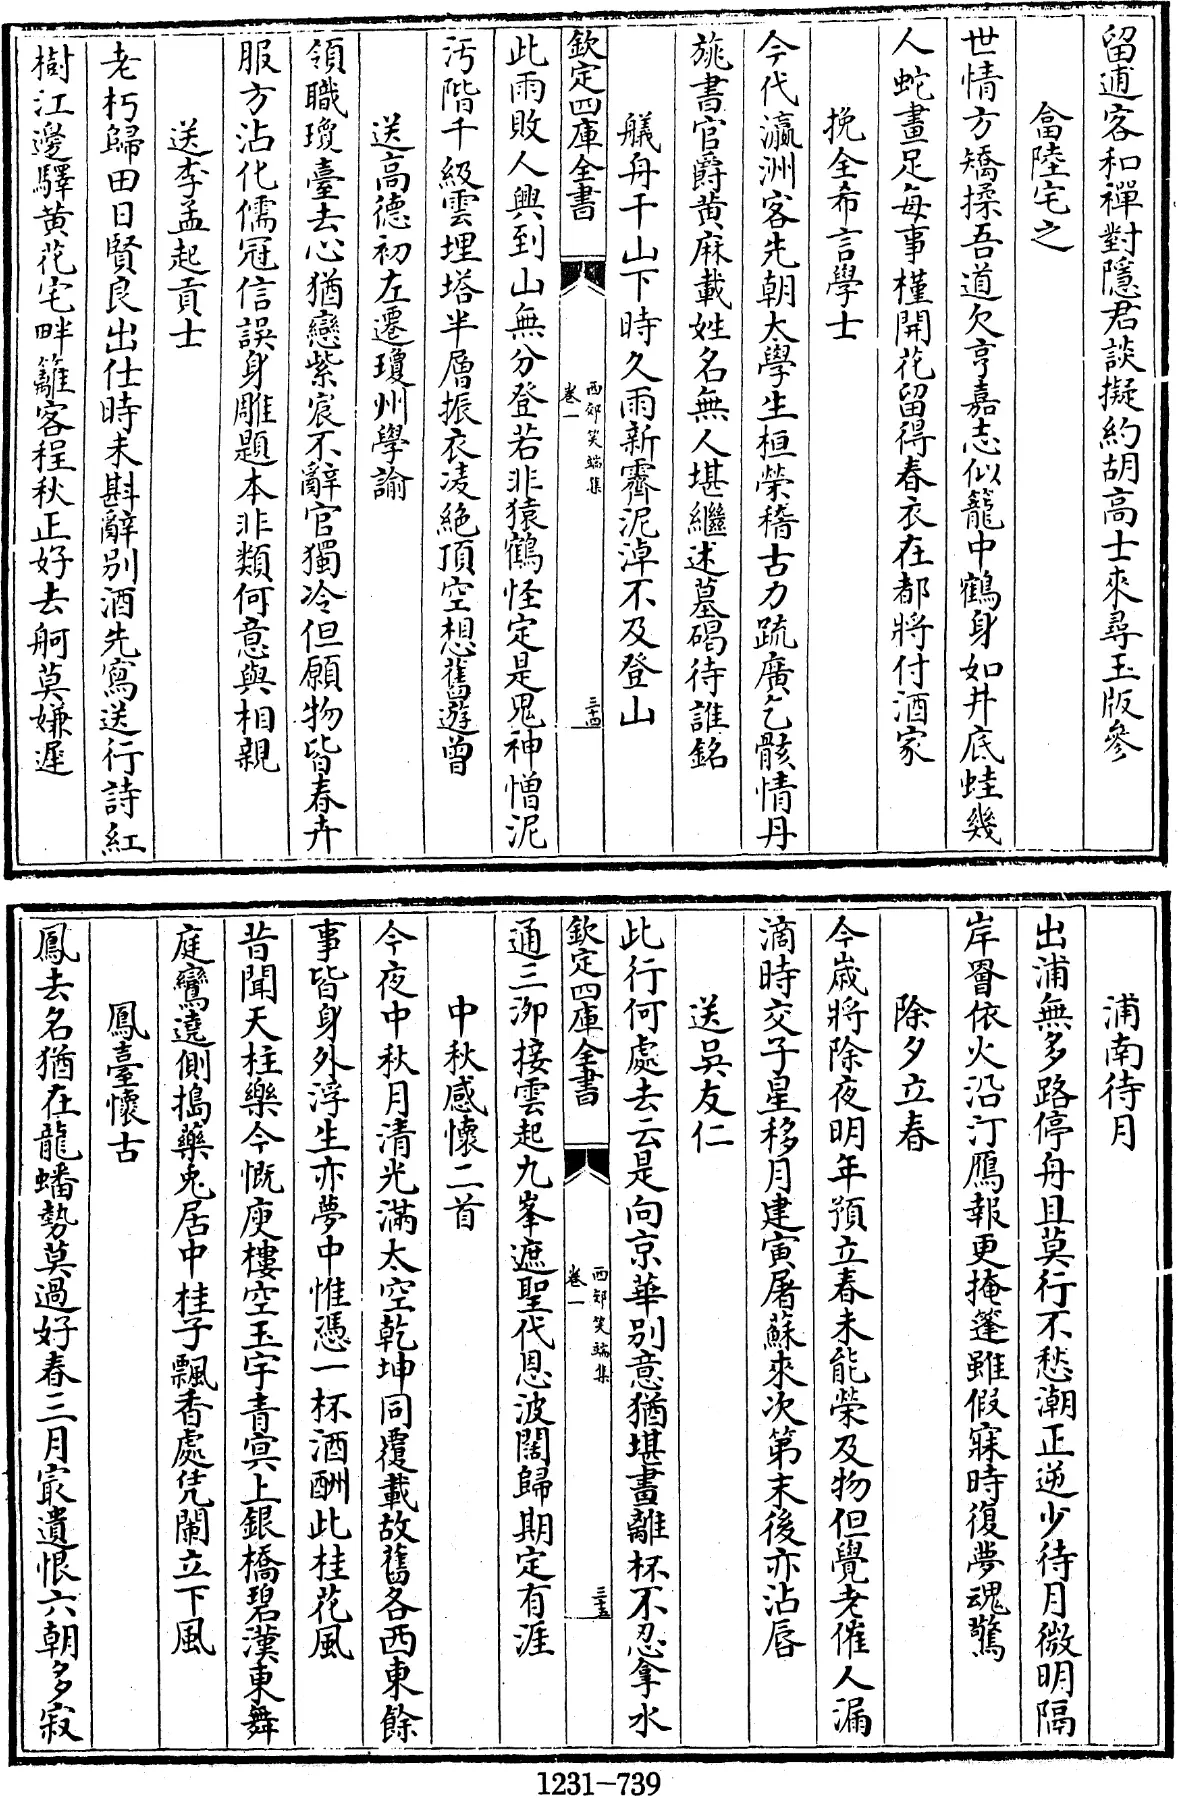 留逋客和禪對隱君談擬約胡高士來尋玉版參
畣陸宅之
世情方矯揉吾道欠亨嘉志似籠中鶴身如井底蛙幾
人蛇畫足每事槿開花留得春衣在都將付酒家
挽全希言學士
今代瀛洲客先朝太學生桓榮稽古力疏廣乞骸情丹
旐書官爵黄麻載姓名無人堪繼述墓碣待誰銘
艤舟干山下時久雨新霽泥淖不及登山
欽定四庫全書
西郊笑端集
卷一
三十四
此雨敗人興到山無分登若非猿鶴怪定是鬼神憎泥
汚階千級雲埋塔半層振衣凌絶頂空想舊遊曾
送高德初左遷瓊州學諭
領職瓊臺去心猶戀紫宸不辭官獨冷但願物皆春卉
服方沾化儒冠信誤身雕題本非類何意與相親
送李孟起貢士
老朽歸田日賢良出仕時未斟辭别酒先寫送行詩紅
樹江邊驛黄花宅畔籬客程秋正好去舸莫嫌遲
浦南待月
出浦無多路停舟且莫行不愁潮正逆少待月微明隔
岸罾依火沿汀鴈報更掩篷雖假寐時復夢魂驚
除夕立春
今歲將除夜明年預立春未能榮及物但覺老催人漏
滴時交子星移月建寅屠蘇來次第末後亦沾唇
送吳友仁
此行何處去云是向京華别意猶堪畫離杯不忍拿水
欽定四庫全書
西郊笑端集
卷一
三十五
通三泖接雲起九峯遮聖代恩波闊歸期定有涯
中秋感懷二首
今夜中秋月清光滿太空乾坤同覆載故舊各西東餘
事皆身外浮生亦夢中惟憑一杯酒酬此桂花風
昔聞天柱樂今慨庾樓空玉宇青冥上銀橋碧漢東舞
庭鸞遶側搗藥兎居中桂子飄香處凭闌立下風
鳳臺懷古
鳳去名猶在龍蟠勢莫過好春三月㝡遺恨六朝多寂
1231-739